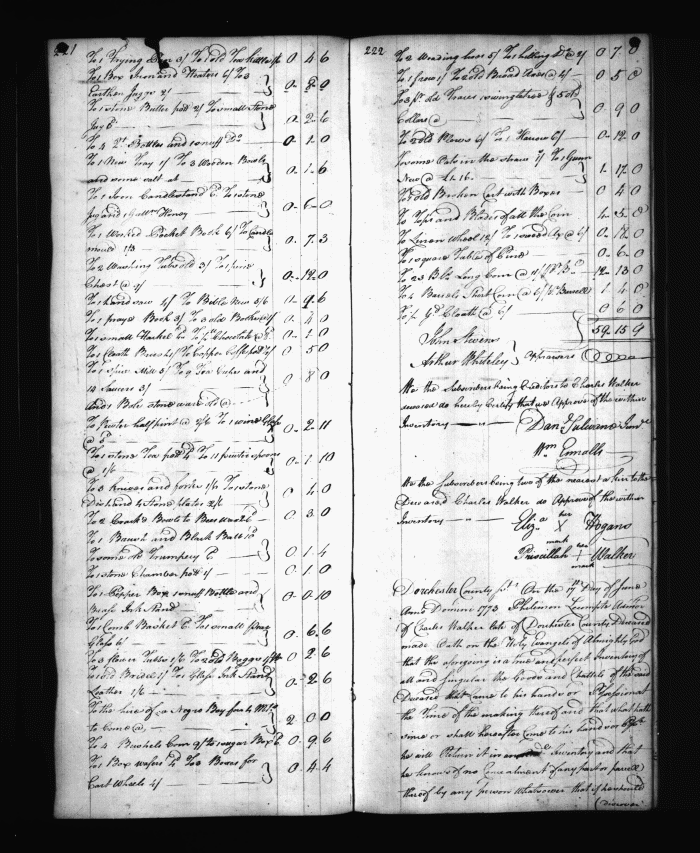 221
To 1 Frying Pan 3/ To 1 old Tea kettle 0 4 6
To 1 Box Iron and Heaters 6/ To 3
Earthen Juggs 2/ 0 8 0
To 1 stone Butter pott 2/ To small stone
Jug 6d 0 2 6
To 4 Qt Bottles and 1 snuff Do 0 1 0
To 1 New Tray 1/ To 3 Wooden Bowls
and some salt at 0 1 6
To 1 Iron Candlestand To 1 stone
Jug and Honey 0 6 0
To 1 Worked Pocket Book 6/ To Candle
mould 1/3 0 7 3
To 2 Washing Tubs old 3/ To 1 pine
Chest @ 9/ 0 12 0
To 1 hand saw 4/ To Bible New 3/6
To 1 prayer Book 3/ To 3 old Books 1/ 0 4 0
To small Hackel To Chocolate 0 1 0
To 1 Cloath Brush To Copper Coffe pott 0 5 0
To 1 Spice Mill 3/ To 9 Tea Cups and
10 Saucers 3/ 0 8 0
and 1 Bole stone ware
To Pewter half pint @ 2/6 To 1 wine Glass
@ 5d 0 2 11
To 1 stone Tea pott 4d To 11 pewter spoons
@ 1/6 0 1 10
To 3 knives and forks 1/6 To 1 stone
Dish and 4 stone plates 2/6 0 4 0
To 2 Bowls 0 3 0
To 1 Brush and Black Ball 10d
To some old Trumpery 6 0 1 4
To 1 stone Chamber pott 1/ 0 1 0
To 1 Pepper Box 1 snuff Bottle and
Brass Ink Stand 0 0 10
To 1 Comb Basket To 1 small
Glass 6/ 0 6 6
To 3 flower Tubbs 1/6 To 2 old 0 2 6
To 1 old Bridle 1/ To 1 Glass Ink Stand
Leather 1/6 0 2 6
To the hire of a Negro Boy for 4
to Come @ 2 0 0
To 4 Bushels Corn 9/ To sugar Box 6 0 9 6
To 1 Box wafers To 3 Boxes for
Cart Wheels 4/ 0 4 4
222
To 2 Weading hoes 5/ To 1 hilling Do @ 2/ 0 7 0
To 1 grew 1/ To 2 old Broad hoes @ 4/ 0 5 0
To 3 pr old Traces swingletree & 5 old
Collars @ 0 9 0
To 2 old Plows 6/ To 1 Harrow 6/ 0 12 0
To some Oats in the straw 1/ To 1 Gunn
New @ £1.16 1 17 0
To 1 old Broken Cart with Boxes 0 4 0
To Tops and Blades of all the Corn 5 0
To 1 Linen Wheel 12/ 0 12 0
To 1 square Table of Pine 0 6 0
To 23 Bls Long Corn @ 11/ 12 13 0
To 4 Barrels Short Corn @ 6/ pr Barrell 1 4 0
To Cloath @ 6/ 0 6 0
59 15 9
John Stevens
Arthur Whiteley } Appraisers
We the Subscribers being Creditors to Charles Walker
deceased do hereby Certify that we Approve of the within
Inventory Danl Sulevane Junr
Wm Ennalls
We the Subscribers being two of the nearest a kin to the
Deceased Charles Walker do Approve of the within
Inventory Eliza her X mark Hogans
Priscillah her + mark Walker
Dorchester County Sct On the 17th Day of June
Anno Domini 1773 Philemon Lecompte Admor
of Charles Walker late of Dorchester County Deceased
made Oath on the Holy Evangels of Almighty God
that the aforegoing is a true and perfect Inventory of
all and singular the Goods and Chattels of the said
Deceased that came to his hands or Possession at
the time of the making thereof and that what hath
since or shall hereafter come to his hands or
he will Return it in Inventory and that
he knows of no Concealment of any part or parcell
thereof by any person Whatsoever that if he
discover